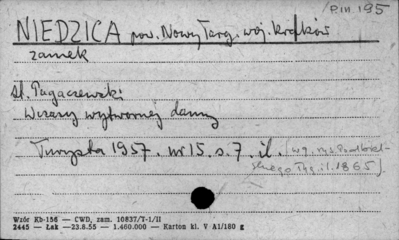 P.111.195
NIEDZICA pow. Nowy Targ, woj. kraków
zamek
St. Pagaczewski
Wczasy wytwornej damy
Turysta 1957. nr 15. s. 7. il. [wg. rys. Podbiel-
skiego Tyg. il. 1865].
Wzór Kb-156 — CWD, zam. 10837/T-1/II
2445 — Łak —23.8.55 — 1.480.000 — Karton kl. V A1/180 g